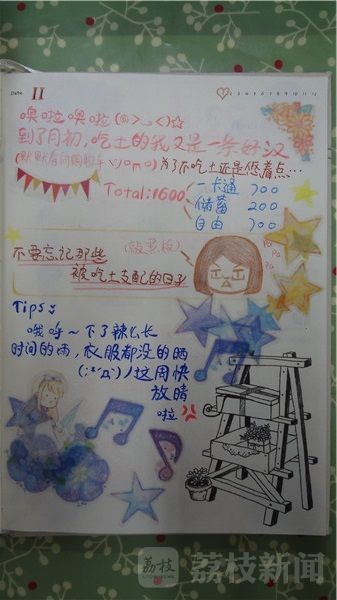 DATE 11
1 2 3 4 5 6 7 8 9 10 11 12
噢啦噢啦(◎>_<)☆
到了月初，吃土的我又是一条好汉
(默默看向购物车ヽ)o m o)
为了不吃土还是悠着点…
Total:1600
一卡通 700
储蓄 200
自由 700
不要忘记那些
被吃土支配的日子
Tips:
哦哼~下了辣么长
时间的雨，衣服都没的晒
(;*Д`)ノ这周快
放晴
啦
PaPaPa
荔枝
荔枝新闻